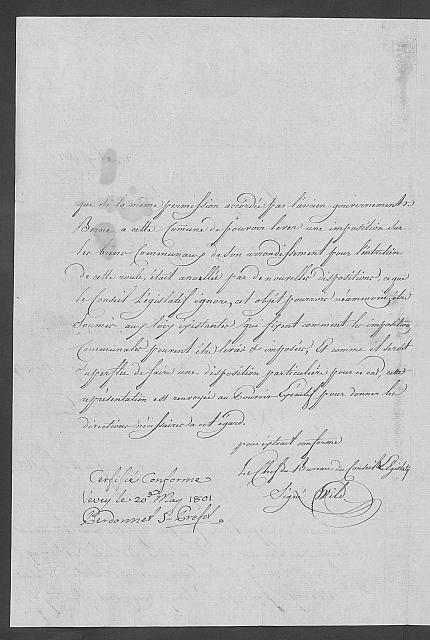 que si la même permission accordée par l'ancien gouvernement de
Berne a cette Comune de pouvoir lever une imposition sur
les biens Communaux de son arrondissement pour l'entretien
de cette route, était annullée par de nouvelles dispositions, ce que
le Conseil Législatif ignore, cet objet pourroit néanmoins être
soumis aux loix existantes qui fixent comment les impositions
Communales peuvent être levées & imposées, Et comme il seroit
superflu de faire une disposition particulière pour ce cas, cette
représentation est renvoyée au Pouvoir Exécutif pour donner les
directions nécessaires a cet égard.
pour extrait conforme
Le Chef du Bureau du Conseil Législatif
Signé Wild
Certifié Conforme
Vevey le 20e May 1801
Perdonnet Ss Préfet